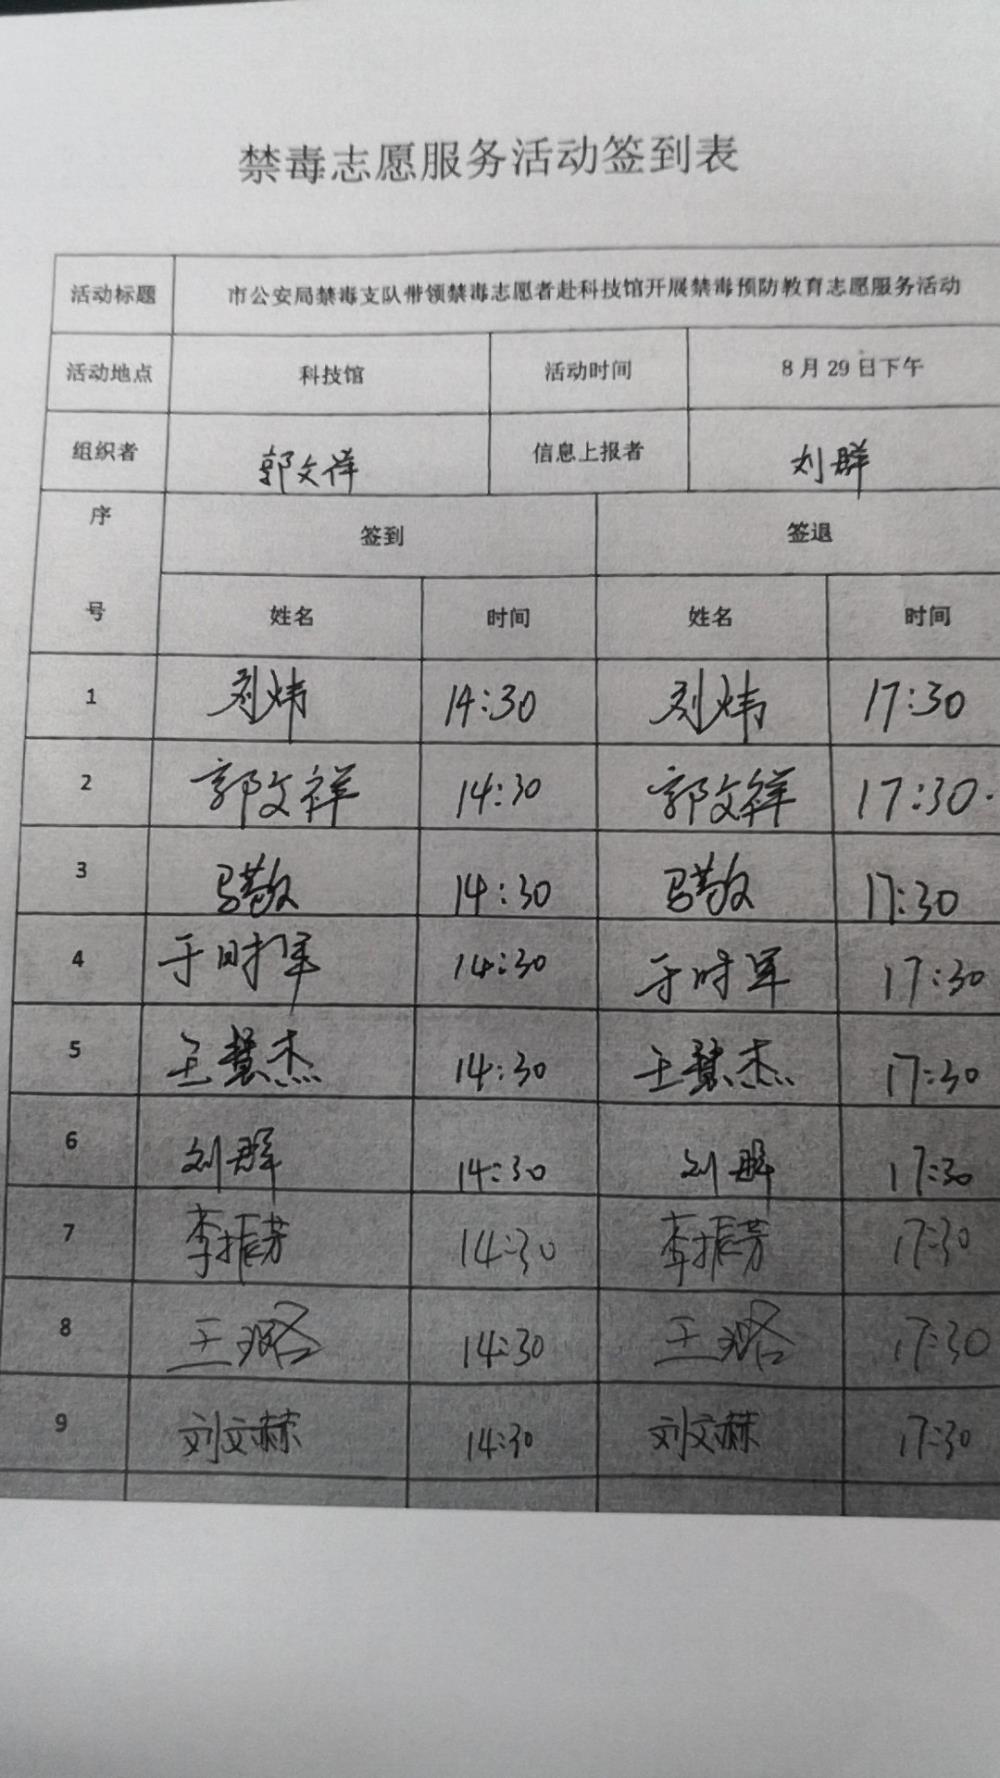 禁毒志愿服务活动签到表
活动标题 市公安局禁毒支队带领禁毒志愿者赴科技馆开展禁毒预防教育志愿服务活动
活动地点 科技馆 活动时间 8月29日下午
组织者 郭文祥 信息上报者 刘群
序号 签到 签退
姓名 时间 姓名 时间
1 刘炜 14:30 刘炜 17:30
2 郭文祥 14:30 郭文祥 17:30.
3 马敬 14:30 马敬 17:30
4 于时军 14:30 于时军 17:30
5 王慧杰 14:30 王慧杰 17:30
6 刘群 14:30 刘群 17:30
7 李振芳 14:30 李振芳 17:30
8 王璐 14:30 王璐 17:30
9 刘文赫 14:30 刘文赫 17:30